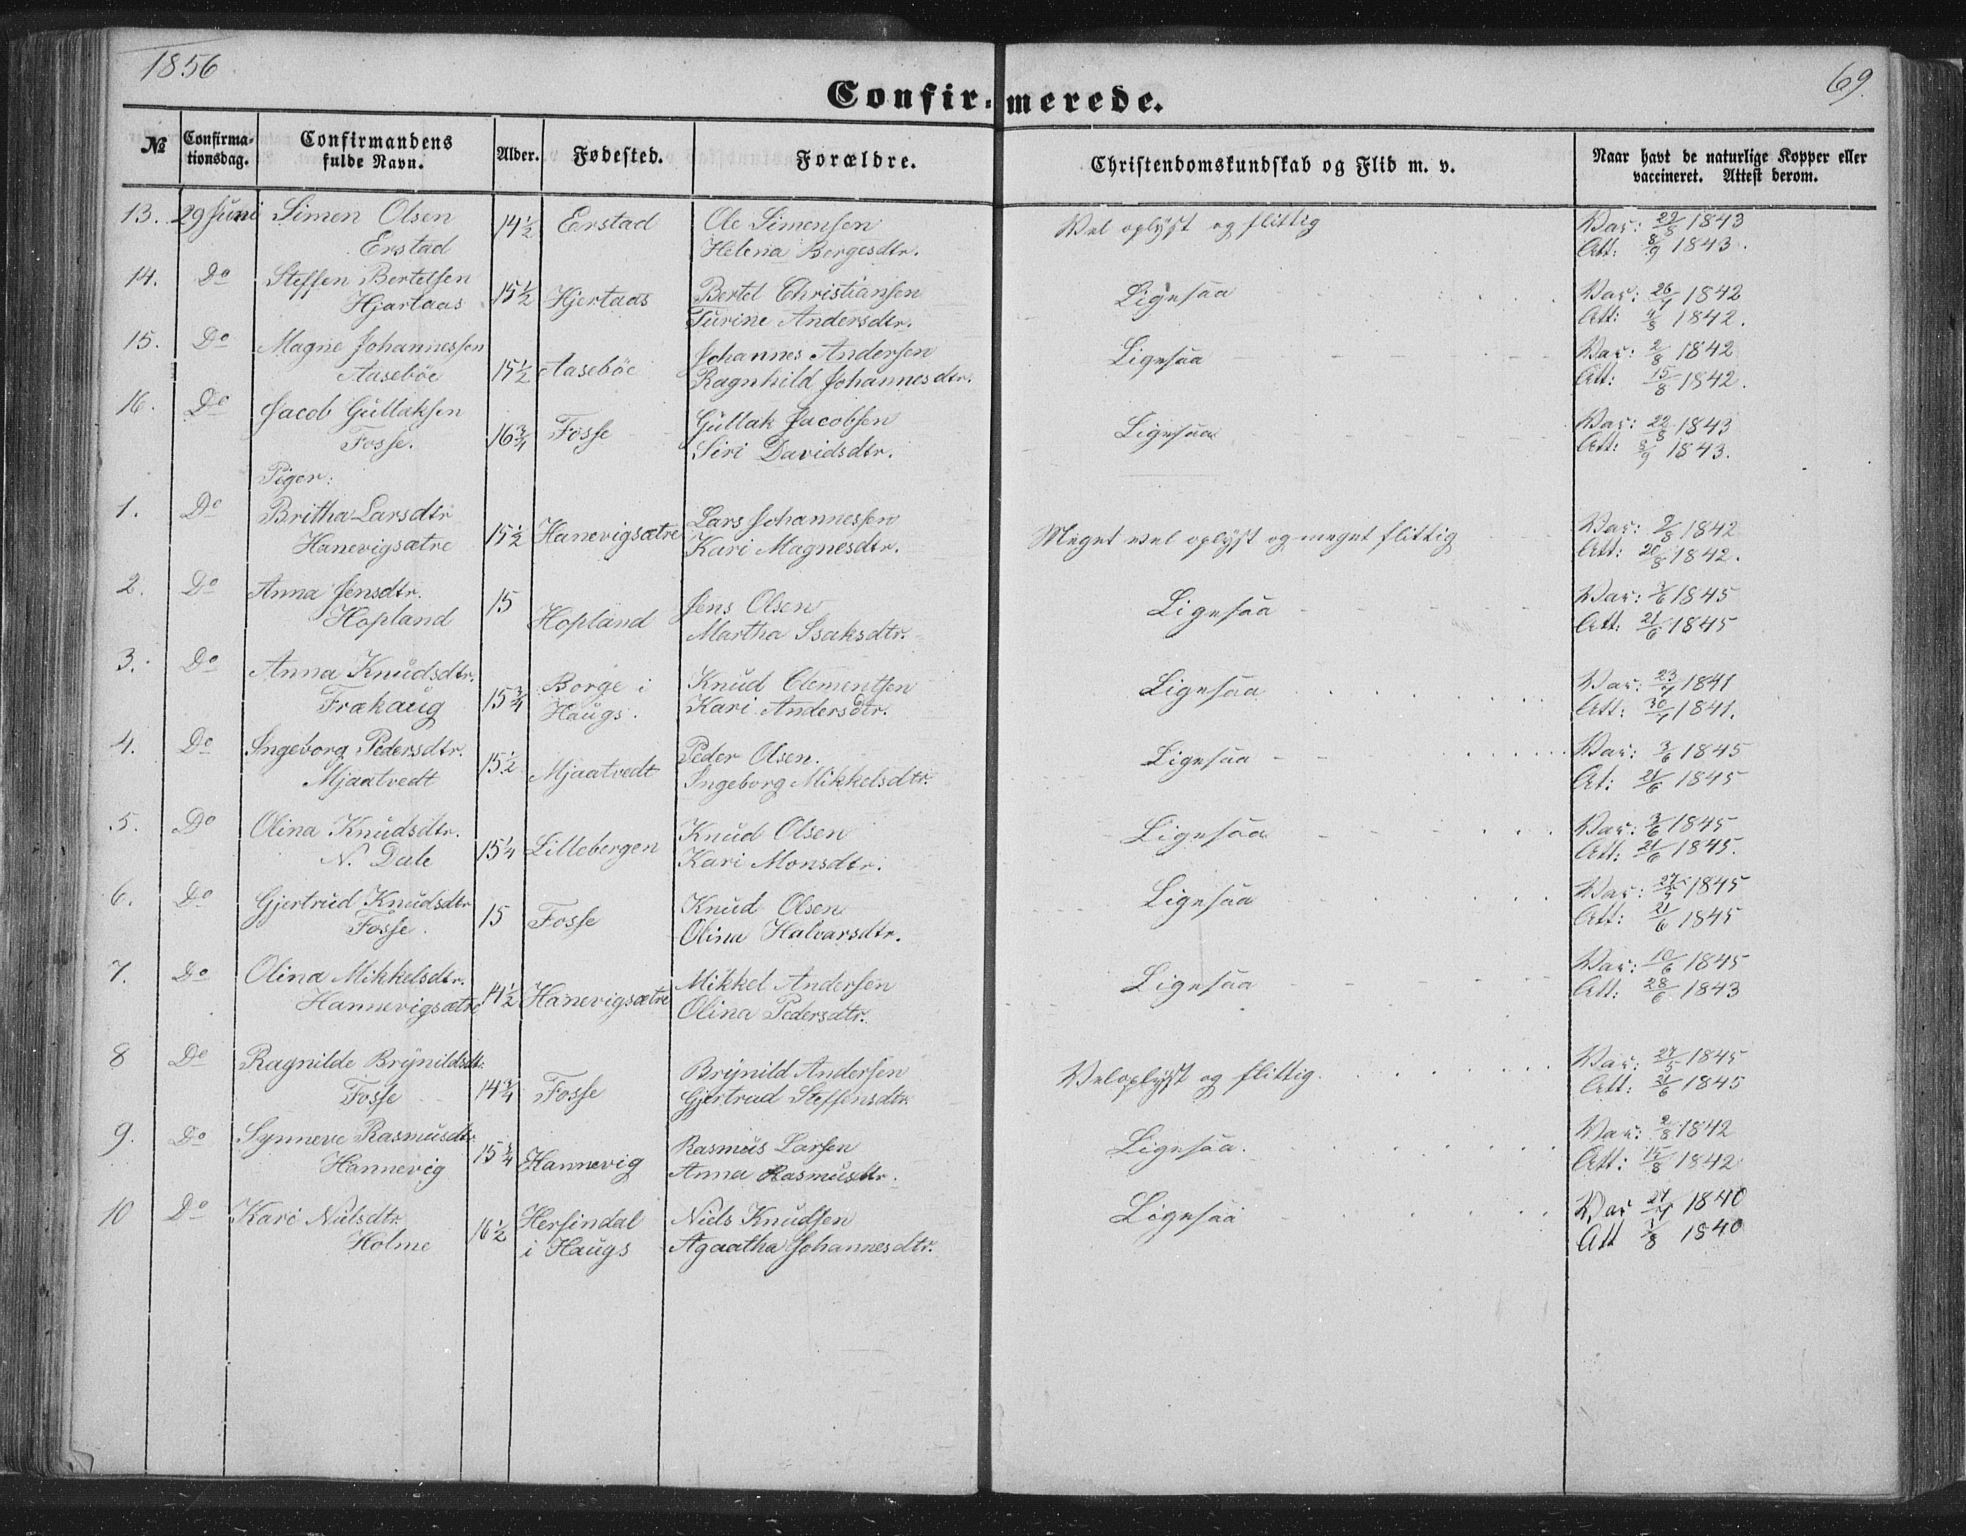 1856
69.
Confirmerede.
№ Confirmationsdag. Confirmandens fulde Navn. Alder. Fødested. Forældre. Christendomskundskab og Flid m. v. Naar havt de naturlige Kopper eller vaccineret. Attest derom.
13. 29 Juni Simen Olsen 14½ Erstad Ole Simensen Vel oplyst og flittig Vac: 22/8 1843
Erstad Helena Borgesdtr. Att: 8/9 1843.
14. Do Steffen Bertelsen 15½ Hjertaas Bertel Christiansen Ligesaa Vac: 26/7 1842
Hjartaas Turine Andersdtr. Att: 4/8 1842.
15. Do Magne Johannessen 15½ Aaseböe Johannes Andersen Ligesaa Vac: 2/8 1842
Aaseböe Ragnhild Johannesdtr. Att: 15/8 1842.
16. Do Jacob Gullaksen 16¾ Fosse Gullak Jacobsen Ligesaa Vac: 22/8 1843
Fosse. Siri Davidsdtr. Att: 8/9 1843.
Piger:
1. Do Britha Larsdtr 15½ Hanevigsætre Lars Johannessen Meget vel oplyst og meget flittig Vac: 2/8 1842
Hanevigsætre Kari Magnesdtr. Att: 20/8 1842.
2. Do Anna Jensdtr. 15 Hopland Jens Olsen Ligesaa Vac: 3/6 1845
Hopland Martha Isaksdtr. Att: 21/6 1845
3. Do Anna Knudsdtr. 15¾ Borge i Knud Clementsen Ligesaa Vac: 23/7 1841
Frækaug Haugs. Kari Andersdtr. Att: 30/7 1841.
4. Do Ingeborg Pedersdtr. 15½ Mjaatvedt Peder Olsen. Ligesaa Vac: 3/6 1845
Mjaatvedt Ingeborg Mikkelsdtr. At: 21/6 1845
5. Do Olina Knudsdtr. 15¼ Lillebergen Knud Olsen Ligesaa Vac: 3/6 1845
N. Dale Kari Monsdtr. Att: 21/6 1845.
6. Do Gjertrud Knudsdtr 15 Fosse Knud Olsen Ligesaa Vac: 27/5 1845
Fosse. Olina Halvarsdtr. Att: 21/6 1845
7. Do Olina Mikkelsdtr. 14½ Hanevigsætre Mikkel Andersen Ligesaa Vac: 10/6 1845
Hannevigsætre Olina Pedersdtr. Att: 28/6 1843
8 Do Ragnilde Brynildsdtr. 14¾ Fosse Brynild Andersen Vel oplyst og flittig. Vac: 27/5 1845
Fosse Gjertrud Steffensdtr Att: 21/6 1845
9. Do Synneve Rasmusdtr 15¼ Hannevig Rasmus Larsen Ligesaa. Vac: 2/8 1842
Hannevig Anna Rasmusdtr. Att: 15/8 1842
10 Do Kari Nielsdtr. 16½ Hersindal Niels Knudsen Ligesaa Vac 27/7 1840
Holme i Haugs Agaatha Johannesdtr. Att 1/8 1840